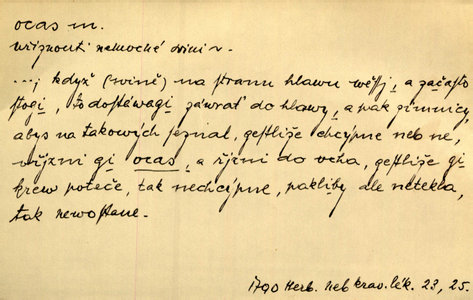 ocas m.
uříznouti nemocné svini ~
...; když (swině) na stranu hlawu wěssj, a začasto
stogj, to dostáwagj záwrať do hlawy, a pak zimnicy,
abys na takowých seznal, gestliže chcýpne neb ne,
uřjzni gj ocas, a řjzni do ucha, gestliže gj
krew poteče, tak nechcýpne, pakliby ale netekla,
tak newostane.
1790 Herb. neb krav. lék. 23, 25.